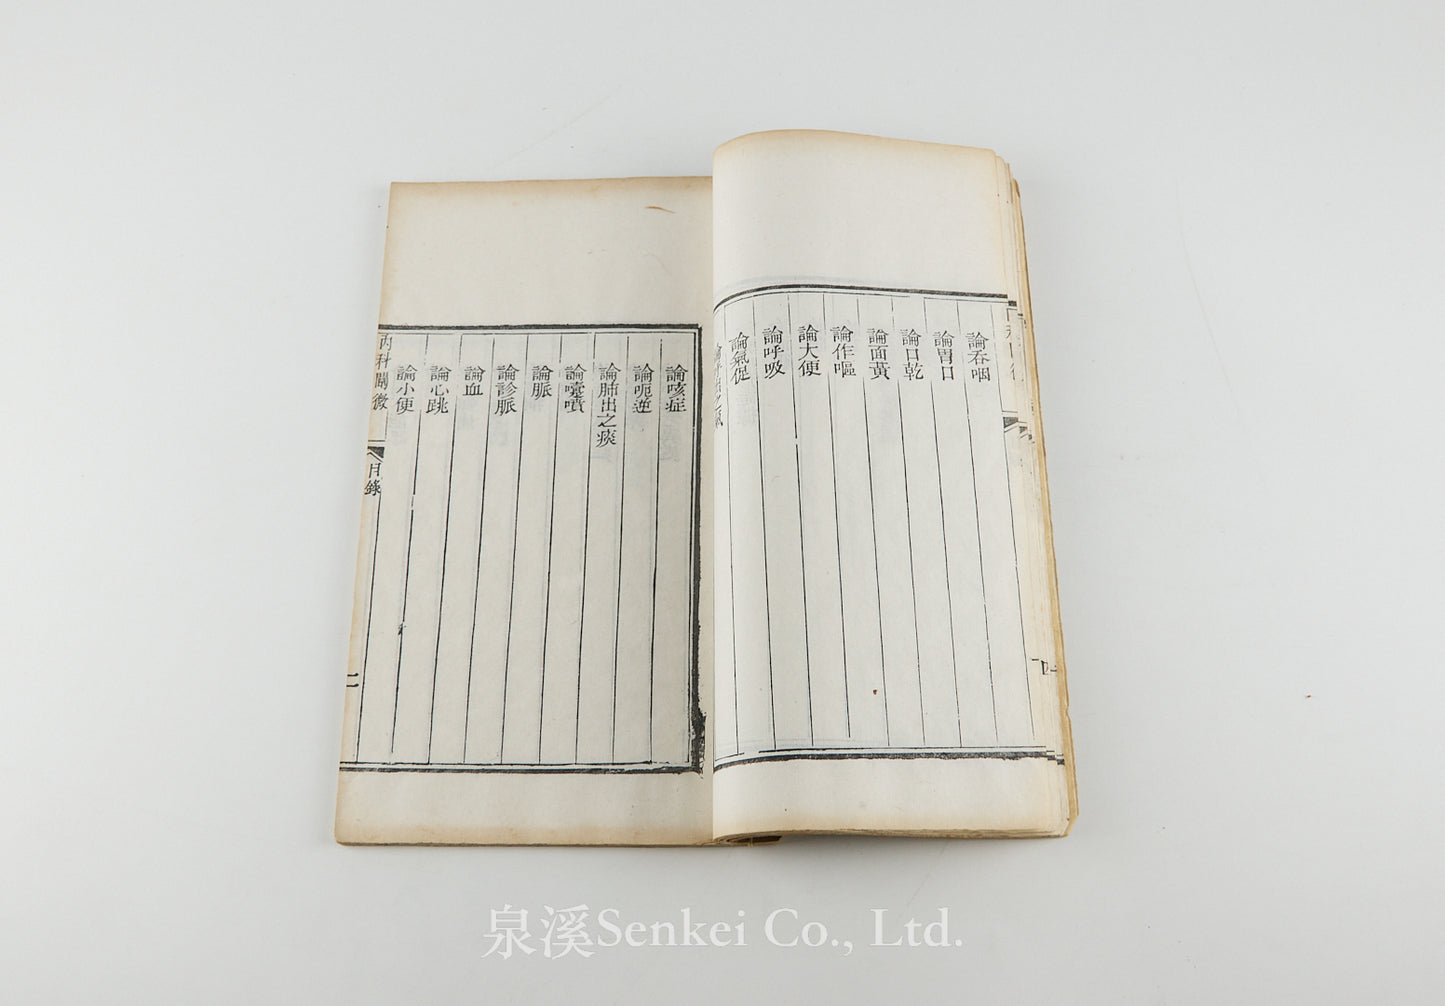 論吞咽
論胃口
論口乾
論面黃
論作嘔
論大便
論呼吸
論氣促
論咳症
論呃逆
論肺出之痰
論嚏噴
論脈
論診脈
論血
論心跳
論小便
內科闡微
目錄
二
泉溪Senkei Co., Ltd.